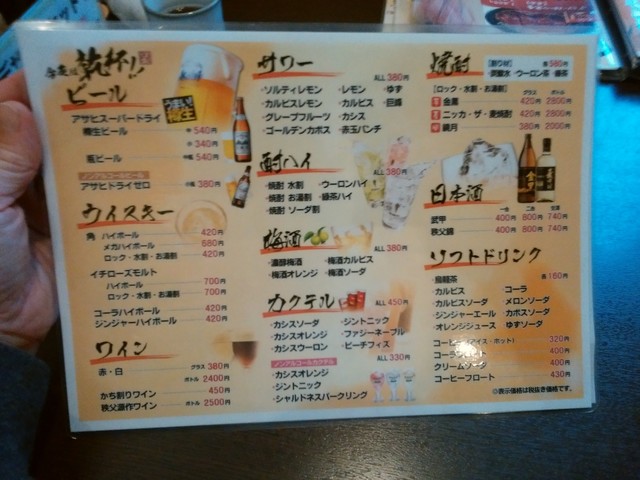 乾杯!!
ビール
うまい!
樽生
アサヒスーパードライ
樽生ビール 中 540円
小 340円
瓶ビール 中瓶 540円
ノンアルコールビール
アサヒドライゼロ 小瓶 380円
ウイスキー
角 ハイボール 420円
メガハイボール 680円
ロック・水割・お湯割 420円
イチローズモルト
ハイボール 700円
ロック・水割・お湯割 700円
コーラハイボール 420円
ジンジャーハイボール 420円
ワイン
赤・白 グラス 380円
ボトル 2400円
かち割りワイン 450円
秩父源作ワイン ボトル 2500円
サワー
ALL 380円
・ソルティレモン ・レモン ・ゆず
・カルピスレモン ・カルピス ・巨峰
・グレープフルーツ ・カシス
・ゴールデンカボス ・赤玉パンチ
酎ハイ
ALL 380円
・焼酎 水割 ・ウーロンハイ
・焼酎 お湯割 ・緑茶ハイ
・焼酎 ソーダ割
梅酒
ALL 380円
・濃醇梅酒 ・梅酒カルピス
・梅酒オレンジ ・梅酒ソーダ
カクテル
ALL 450円
・カシスソーダ ・ジントニック
・カシスオレンジ ・ファジーネーブル
・カシスウーロン ・ピーチフィス
ノンアルコールカクテル
ALL 330円
・カシスオレンジ
・ジントニック
・シャルドネスパークリング
焼酎
【割り材】 各 580円
・炭酸水 ・ウーロン茶 ・緑茶
【ロック・水割・お湯割】 グラス ボトル
金黒 420円 2800円
ニッカ・ザ・麦焼酎 420円 2800円
鏡月 380円 2000円
日本酒
武甲 400円 800円 740円
秩父錦 400円 800円 740円
ソフトドリンク
各 160円
・烏龍茶 ・コーラ
・カルピス ・メロンソーダ
・カルピスソーダ ・カボスソーダ
・ジンジャーエール ・ゆずソーダ
・オレンジジュース
コーヒー(アイス・ホット) 320円
コーラ 400円
クリームソーダ 400円
コーヒーフロート 430円
◎表示価格は税抜き価格です。